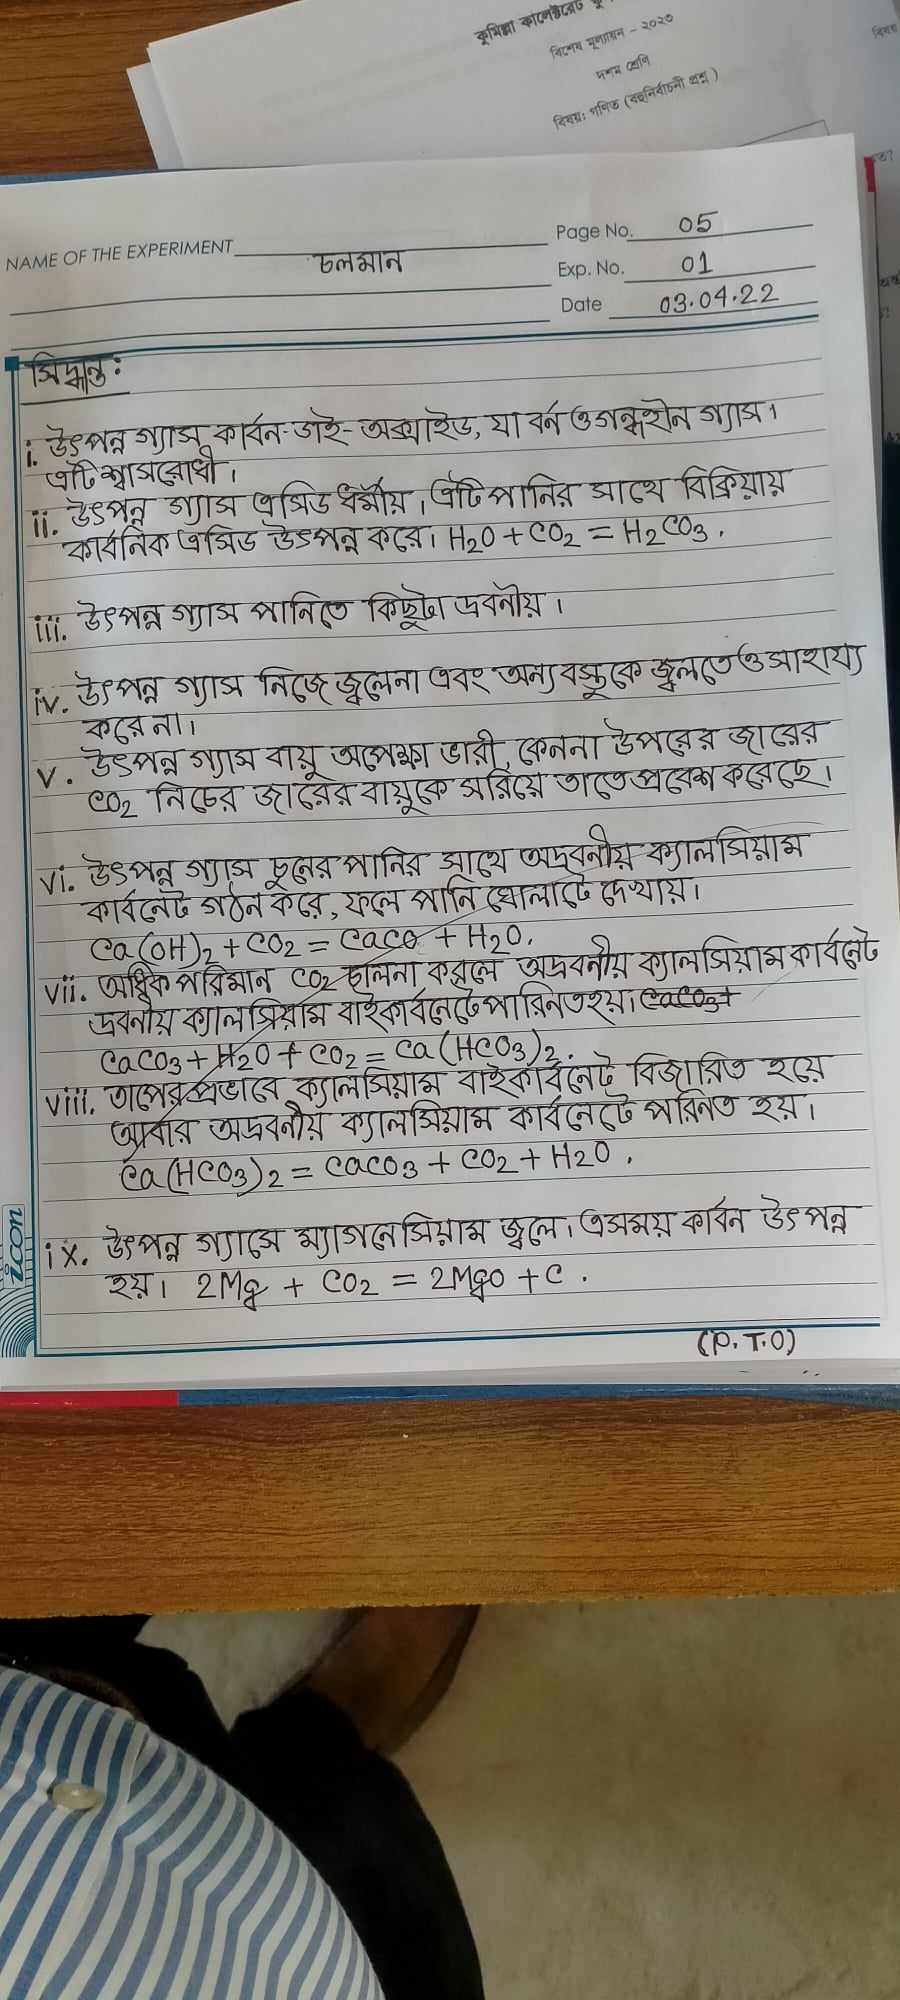 কুমিল্লা কালেক্টরেট
বিশেষ মূল্যায়ন - ২০২৩
দশম শ্রেণি
বিষয়: গণিত (বহুনির্বাচনী প্রশ্ন)
বিষয়
NAME OF THE EXPERIMENT চলমান
Page No. 05
Exp. No. 01
Date 03.04.22
সিদ্ধান্ত:
i. উৎপন্ন গ্যাস কার্বন-ডাই-অক্সাইড, যা বর্ন ও গন্ধহীন গ্যাস।
এটি শ্বাসরোধী।
ii. উৎপন্ন গ্যাস এসিড ধর্মীয়। এটি পানির সাথে বিক্রিয়ায়
কার্বনিক এসিড উৎপন্ন করে। H2O + CO2 = H2CO3.
iii. উৎপন্ন গ্যাস পানিতে কিছুটা দ্রবনীয়।
iv. উৎপন্ন গ্যাস নিজে জ্বলেনা এবং অন্য বস্তুকে জ্বলতেও সাহায্য
করেনা।
v. উৎপন্ন গ্যাস বায়ু অপেক্ষা ভারী, কেননা উপরের জারের
CO2 নিচের জারের বায়ুকে সরিয়ে তাতে প্রবেশ করেছে।
vi. উৎপন্ন গ্যাস চুনের পানির সাথে অদ্রবনীয় ক্যালসিয়াম
কার্বনেট গঠন করে, ফলে পানি ঘোলাটে দেখায়।
Ca(OH)2 + CO2 = CaCO + H2O.
vii. অধিক পরিমান CO2 চালনা করলে অদ্রবনীয় ক্যালসিয়াম কার্বনেট
দ্রবনীয় ক্যালসিয়াম বাইকার্বনেটে পারিনত হয়। CaCO3+
CaCO3 + H2O + CO2 = Ca(HCO3)2.
viii. তাপের প্রভাবে ক্যালসিয়াম বাইকার্বনেট বিজারিত হয়ে
আবার অদ্রবনীয় ক্যালসিয়াম কার্বনেটে পরিনত হয়।
Ca(HCO3)2 = CaCO3 + CO2 + H2O.
ix. উৎপন্ন গ্যাসে ম্যাগনেসিয়াম জ্বলে। এসময় কার্বন উৎপন্ন
হয়। 2Mg + CO2 = 2MgO + C.
icon
(P.T.O)